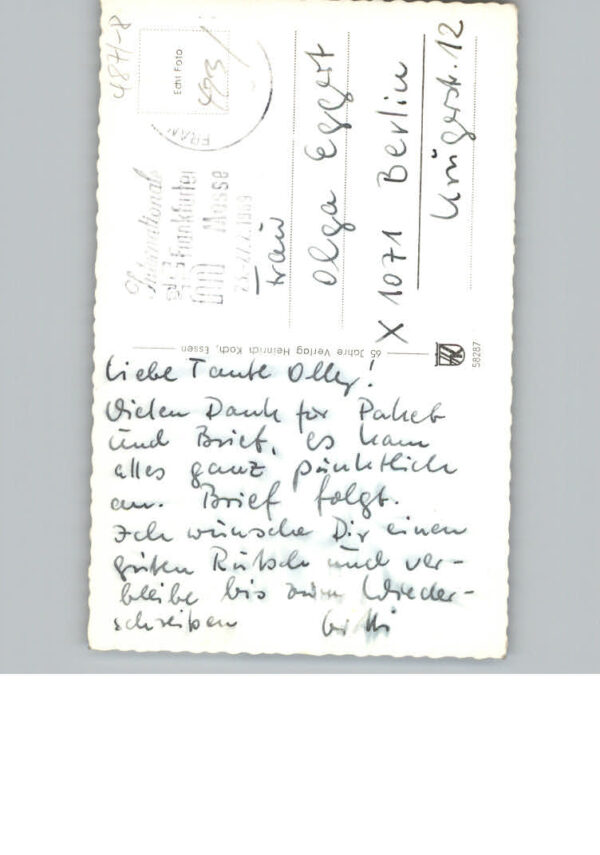 Liebe Tante Olly!
Vielen Dank für Paket
und Brief, es kam
alles ganz pünktlich
an. Brief folgt.
Ich wünsche Dir einen
guten Rutsch und ver-
bleibe bis zum Wieder-
schreiben Gitti
Frau
Olga Eggert
X 1071 Berlin
12
Internationale
Frankfurter
Messe
1969
FRAN
Echt Foto
493
487/-8
65 Jahre Verlag Heinrich Koch, Essen
58287